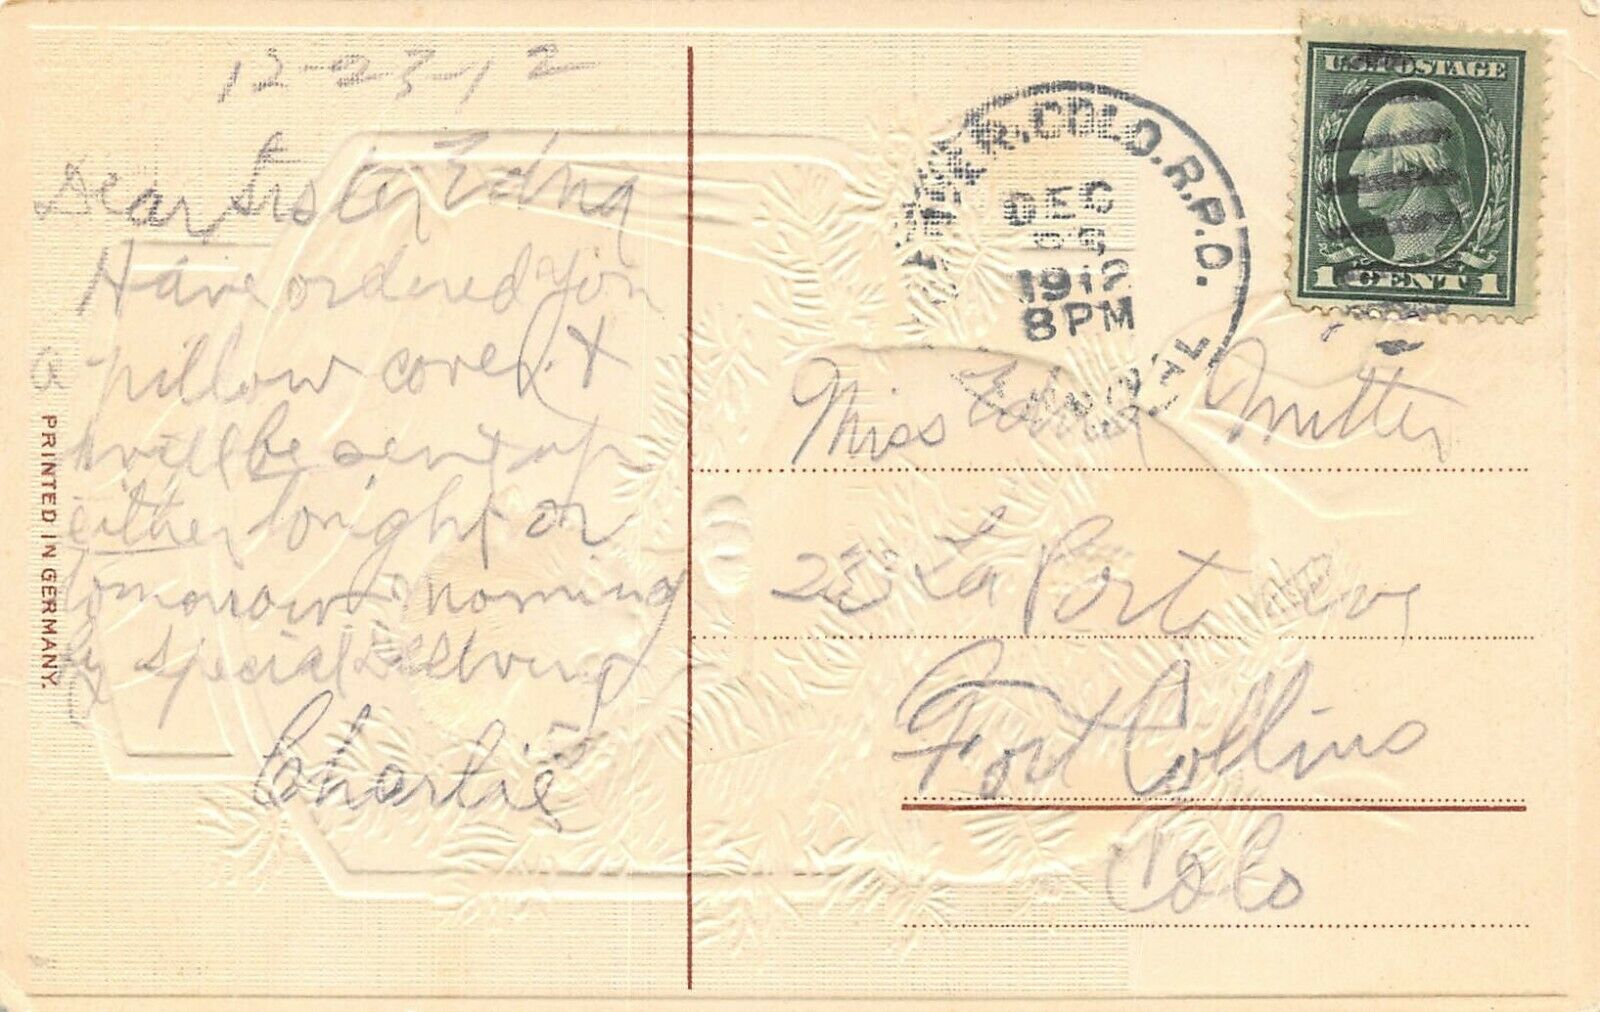 12-23-12
Dear Sister Edna
Have ordered you
a pillow cover &
will be sent up
either tonight or
tomorrow morning
by Special Delivery
Charlie
PRINTED IN GERMANY.
COLO. R.P.O.
DEC
1912
8PM
U.S. POSTAGE
1 CENT 1
Miss Edna
La Porte Ave
Fort Collins
Colo